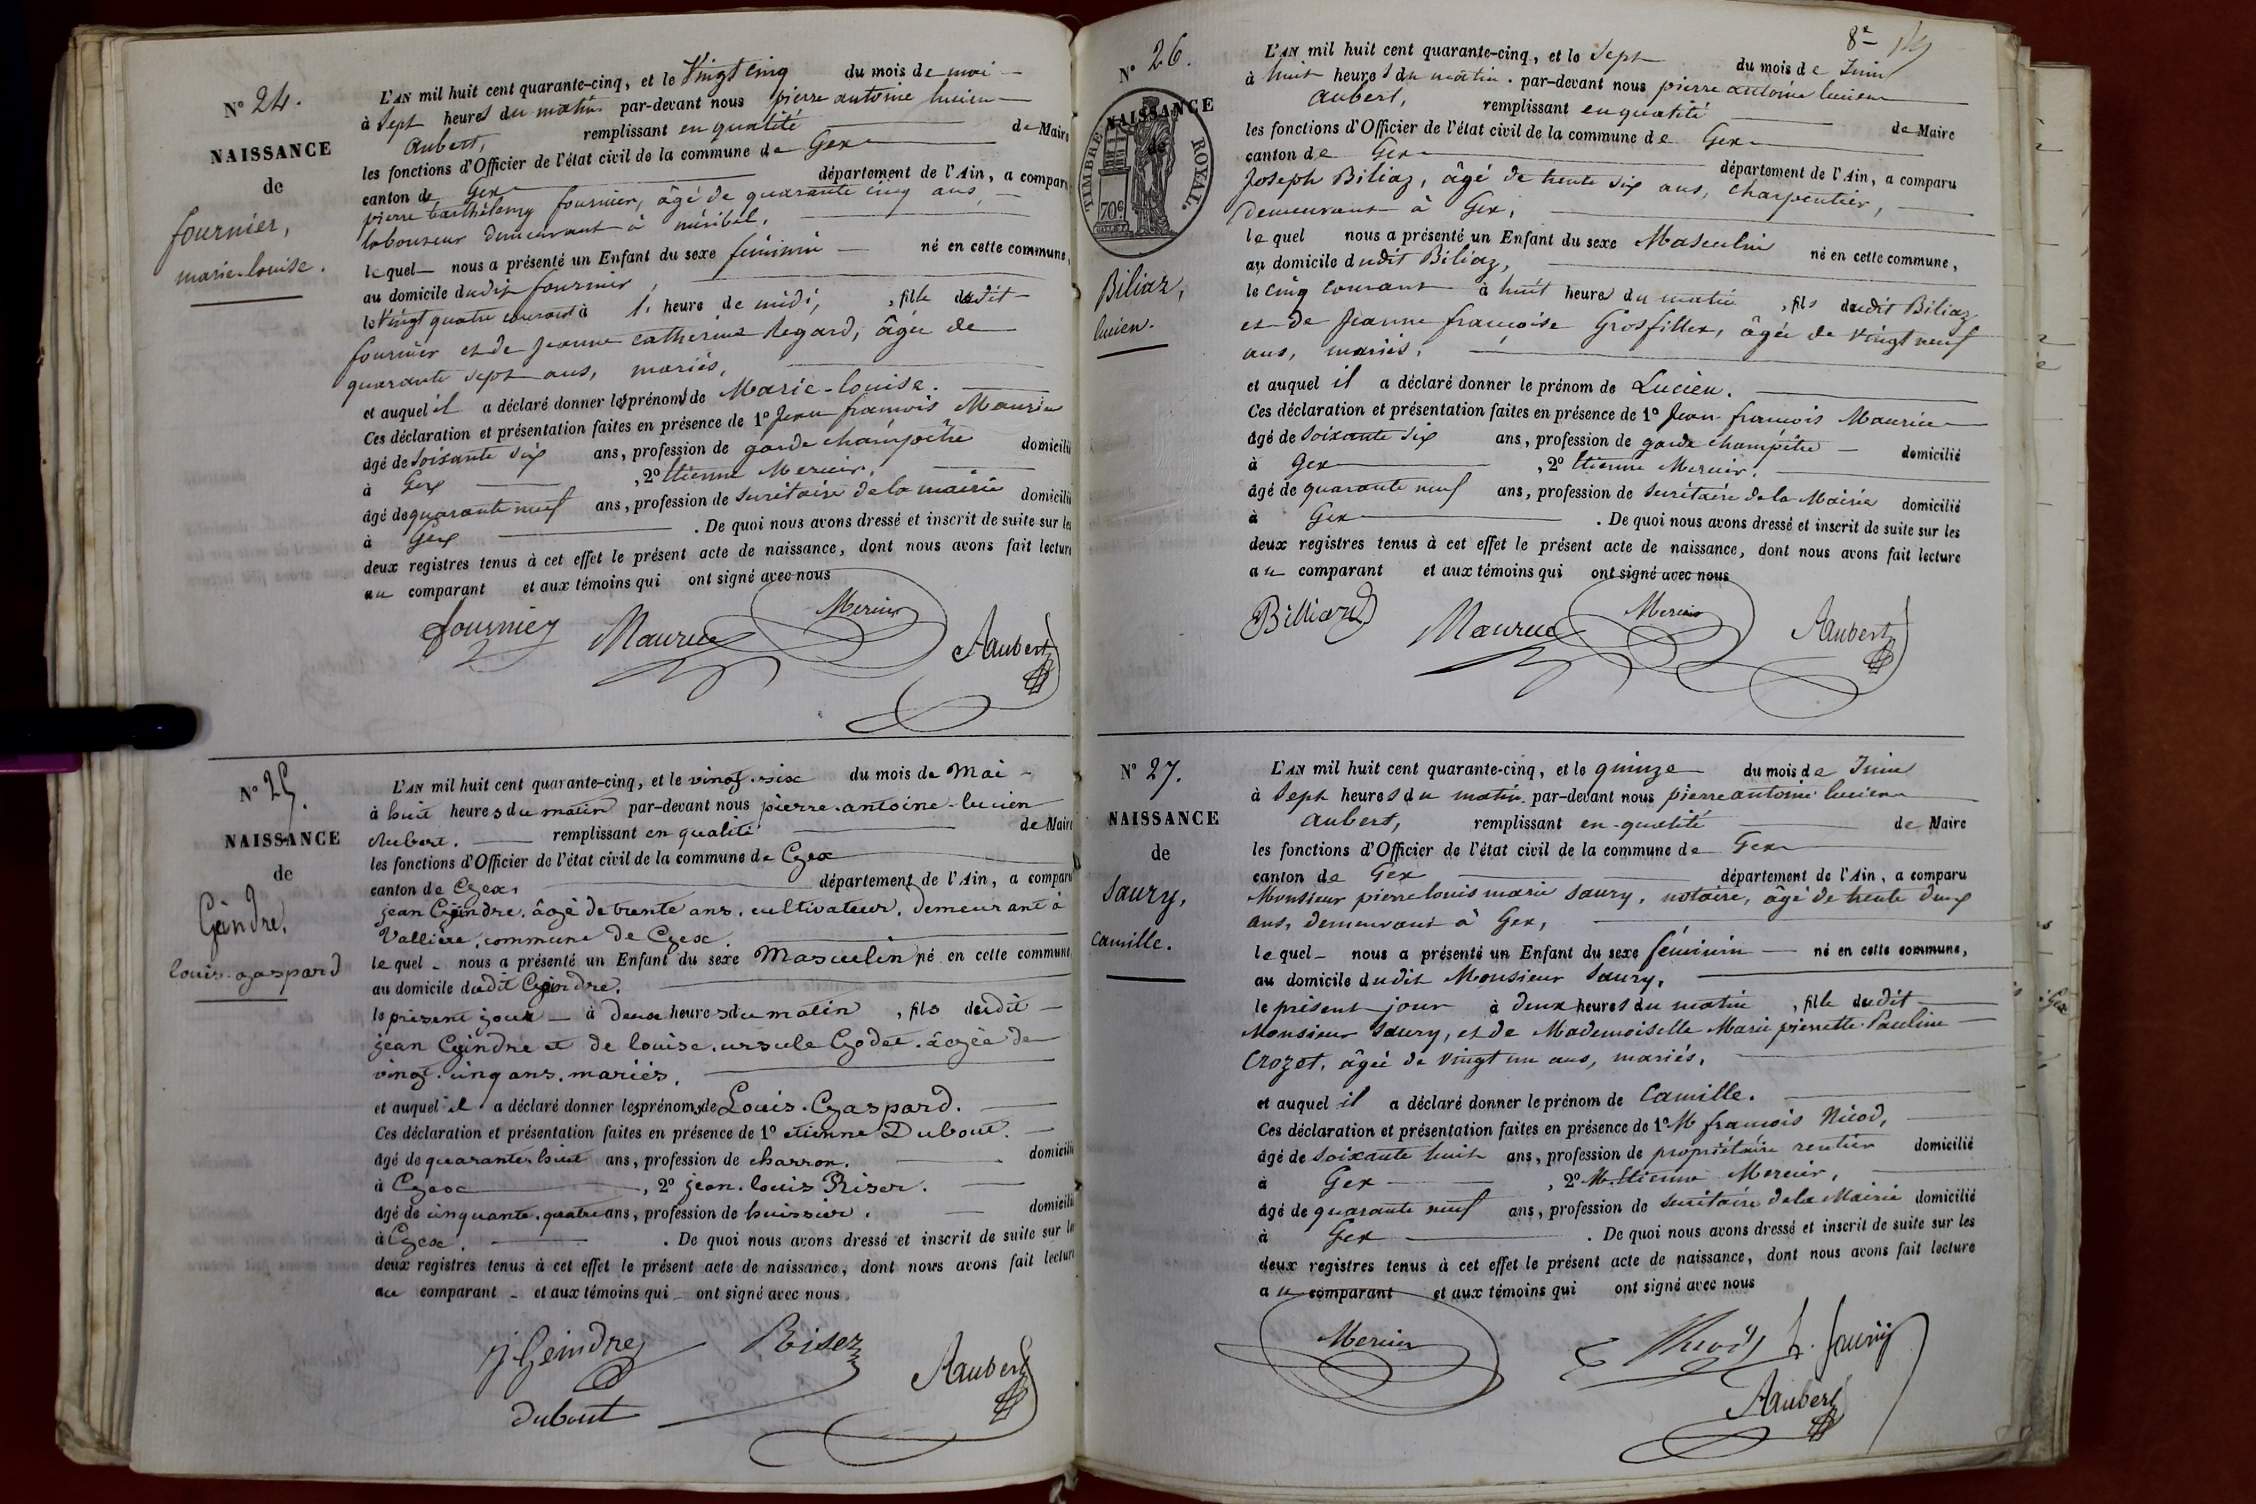 N° 24.
NAISSANCE
de
fournier,
marie-louise.
L'AN mil huit cent quarante-cinq, et le Vingt cinq du mois de mai
à Sept heures du matin par-devant nous pierre antoine lucien
aubert, remplissant en qualité de Maire
les fonctions d'Officier de l'état civil de la commune de Gex
canton de Gex département de l'Ain, a comparu
pierre barthélemy fournier, âgé de quarante cinq ans,
laboureur demeurant à méribel,
lequel nous a présenté un Enfant du sexe féminin né en cette commune,
au domicile dudit fournier,
le Vingt quatre courant à 1. heure de midi, , fille dudit
fournier et de Jeanne Catherine Regard, âgée de
quarante sept ans, mariés,
et auquel il a déclaré donner les prénoms de Marie-louise.
Ces déclaration et présentation faites en présence de 1° Jean françois Maurice
âgé de Soixante six ans, profession de garde champêtre domicilié
à Gex , 2° Etienne Mercier,
âgé de quarante neuf ans, profession de Secrétaire de la mairie domicilié
à Gex . De quoi nous avons dressé et inscrit de suite sur les
deux registres tenus à cet effet le présent acte de naissance, dont nous avons fait lecture
au comparant et aux témoins qui ont signé avec nous
fournier Maurice Mercier Aaubert
N° 25.
NAISSANCE
de
Geindre,
louis-gaspard
L'AN mil huit cent quarante-cinq, et le vingt-six du mois de Mai
à huit heures du matin par-devant nous pierre-antoine-lucien
Aubert. remplissant en qualité de Maire
les fonctions d'Officier de l'état civil de la commune de Gex
canton de Gex, département de l'Ain, a comparu
jean Geindre, âgé de trente ans, cultivateur, demeurant à
Vallière, commune de Gex.
lequel nous a présenté un Enfant du sexe Masculin né en cette commune,
au domicile dudit Geindre.
le présent jour à deux heures du matin , fils dudit
jean Geindre et de louise-ursule Godet, âgée de
vingt-cinq ans, mariés,
et auquel il a déclaré donner les prénoms de Louis-Gaspard.
Ces déclaration et présentation faites en présence de 1° etienne Dubout.
âgé de quarante-huit ans, profession de charron. domicilié
à Gex , 2° jean-louis Riser.
âgé de cinquante-quatre ans, profession de huissier. domicilié
à Gex. . De quoi nous avons dressé et inscrit de suite sur les
deux registres tenus à cet effet le présent acte de naissance, dont nous avons fait lecture
au comparant et aux témoins qui ont signé avec nous.
j Geindre Riser Aaubert
Dubout
8e
N° 26.
NAISSANCE
de
TIMBRE ROYAL.
70c
Biliaz,
lucien.
L'AN mil huit cent quarante-cinq, et le Sept du mois de Juin
à huit heures du matin par-devant nous pierre antoine lucien
aubert, remplissant en qualité de Maire
les fonctions d'Officier de l'état civil de la commune de Gex
canton de Gex département de l'Ain, a comparu
Joseph Biliaz, âgé de trente six ans, Charpentier,
demeurant à Gex,
lequel nous a présenté un Enfant du sexe Masculin né en cette commune,
au domicile dudit Biliaz,
le cinq courant à huit heures du matin , fils dudit Biliaz
et de Jeanne françoise Grosfillex, âgée de vingt neuf
ans, mariés,
et auquel il a déclaré donner le prénom de Lucien.
Ces déclaration et présentation faites en présence de 1° Jean françois Maurice
âgé de Soixante six ans, profession de garde champêtre domicilié
à Gex , 2° Etienne Mercier,
âgé de quarante neuf ans, profession de Secrétaire de la Mairie domicilié
à Gex . De quoi nous avons dressé et inscrit de suite sur les
deux registres tenus à cet effet le présent acte de naissance, dont nous avons fait lecture
au comparant et aux témoins qui ont signé avec nous
Maurice Mercier Aaubert
N° 27.
NAISSANCE
de
Saury,
Camille.
L'AN mil huit cent quarante-cinq, et le quinze du mois de Juin
à Sept heures du matin par-devant nous pierre antoine lucien
aubert, remplissant en qualité de Maire
les fonctions d'Officier de l'état civil de la commune de Gex
canton de Gex département de l'Ain, a comparu
Monsieur pierre louis marie Saury, notaire, âgé de trente deux
ans, demeurant à Gex,
lequel nous a présenté un Enfant du sexe féminin né en cette commune,
au domicile dudit Monsieur Saury,
le présent jour à deux heures du matin , fille dudit
Monsieur Saury, et de Mademoiselle Marie pierrette Pauline
Crozet, âgée de vingt un ans, mariés,
et auquel il a déclaré donner le prénom de Camille.
Ces déclaration et présentation faites en présence de 1° M françois Nicod,
âgé de Soixante huit ans, profession de propriétaire rentier domicilié
à Gex , 2° M. Etienne Mercier,
âgé de quarante neuf ans, profession de Secrétaire de la Mairie domicilié
à Gex . De quoi nous avons dressé et inscrit de suite sur les
deux registres tenus à cet effet le présent acte de naissance, dont nous avons fait lecture
au comparant et aux témoins qui ont signé avec nous
Mercier Nicod Saury
Aaubert